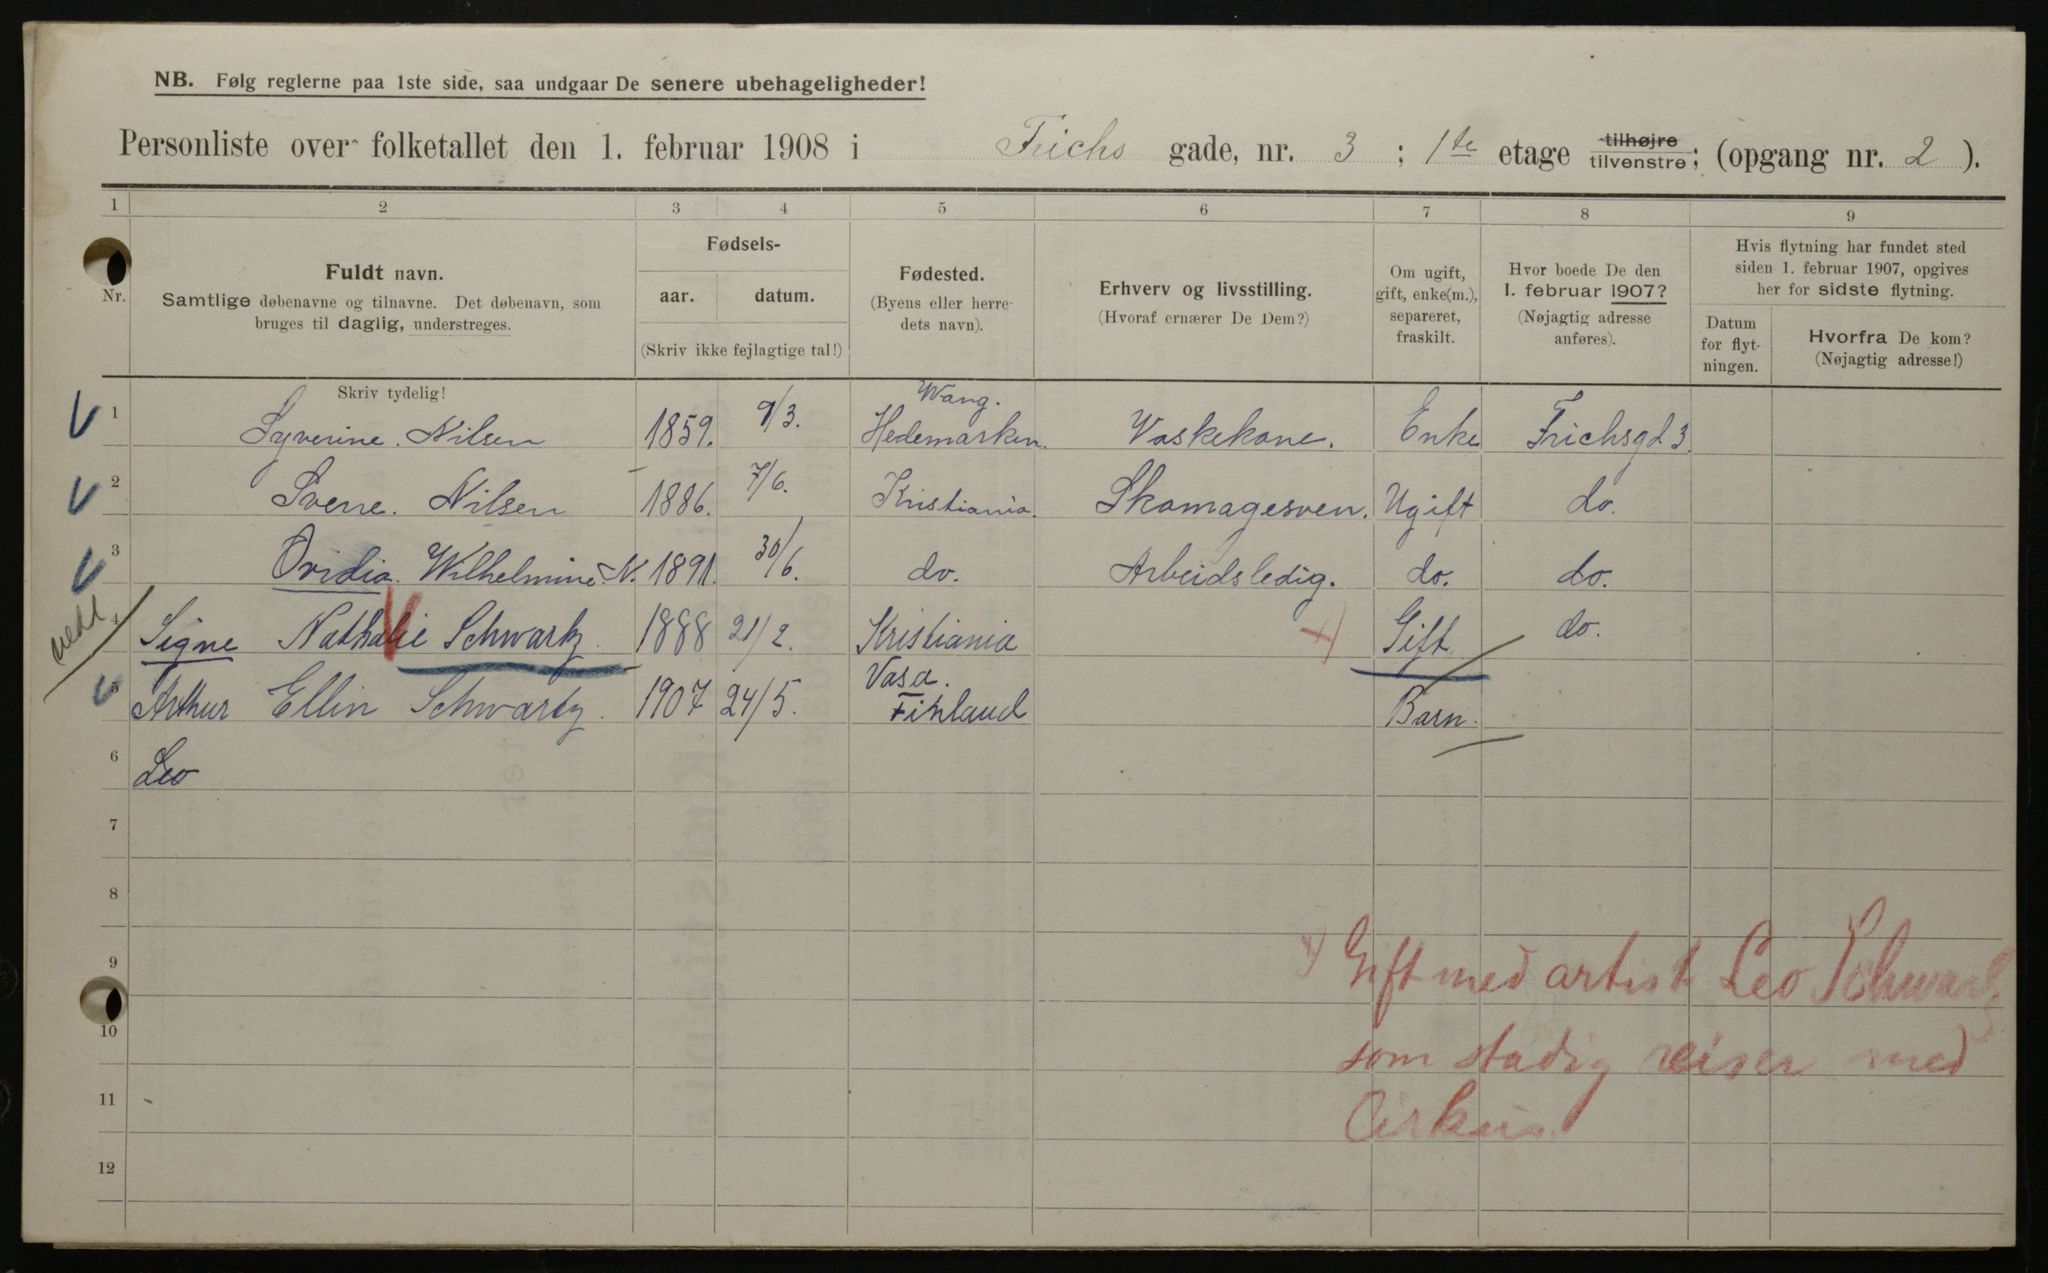 NB. Følg reglerne paa 1ste side, saa undgaar De senere ubehageligheder!
Personliste over folketallet den 1. februar 1908 i Frichs gade, nr. 3 ; 1te etage tilhøjre tilvenstre; (opgang nr. 2 ).
1 2 3 4 5 6 7 8 9
Nr.
Fuldt navn.
Samtlige døbenavne og tilnavne. Det døbenavn, som
bruges til daglig, understreges.
Fødsels-
aar. datum.
(Skriv ikke fejlagtige tal!)
Fødested.
(Byens eller herre-
dets navn).
Erhverv og livsstilling.
(Hvoraf ernærer De Dem?)
Om ugift,
gift, enke(m.),
separeret,
fraskilt.
Hvor boede De den
1. februar 1907?
(Nøjagtig adresse
anføres).
Hvis flytning har fundet sted
siden 1. februar 1907, opgives
her for sidste flytning.
Datum
for flyt-
ningen.
Hvorfra De kom?
(Nøjagtig adresse!)
Skriv tydelig!
Wang.
1 Syverine. Nilsen 1859. 9/3. Hedemarken. Vaskekone. Enke Frichsgd 3.
2 Sverre. Nilsen 1886. 7/6. Kristiania. Skomagesven. Ugift do.
3 Ovidia. Wilhelmine N. 1891. 30/6. do. Arbeidsledig. do. do.
4 Signe Nathalie Schwartz. 1888 21/2. Kristiania x) Gift do.
Vasa.
5 Arthur Ellin Schwartz. 1907 24/5. Finland Barn.
6 Leo
7
8
9
x) Gift med artist Leo Schwartz
10
som stadig reiser med
11
Cirkus.
12